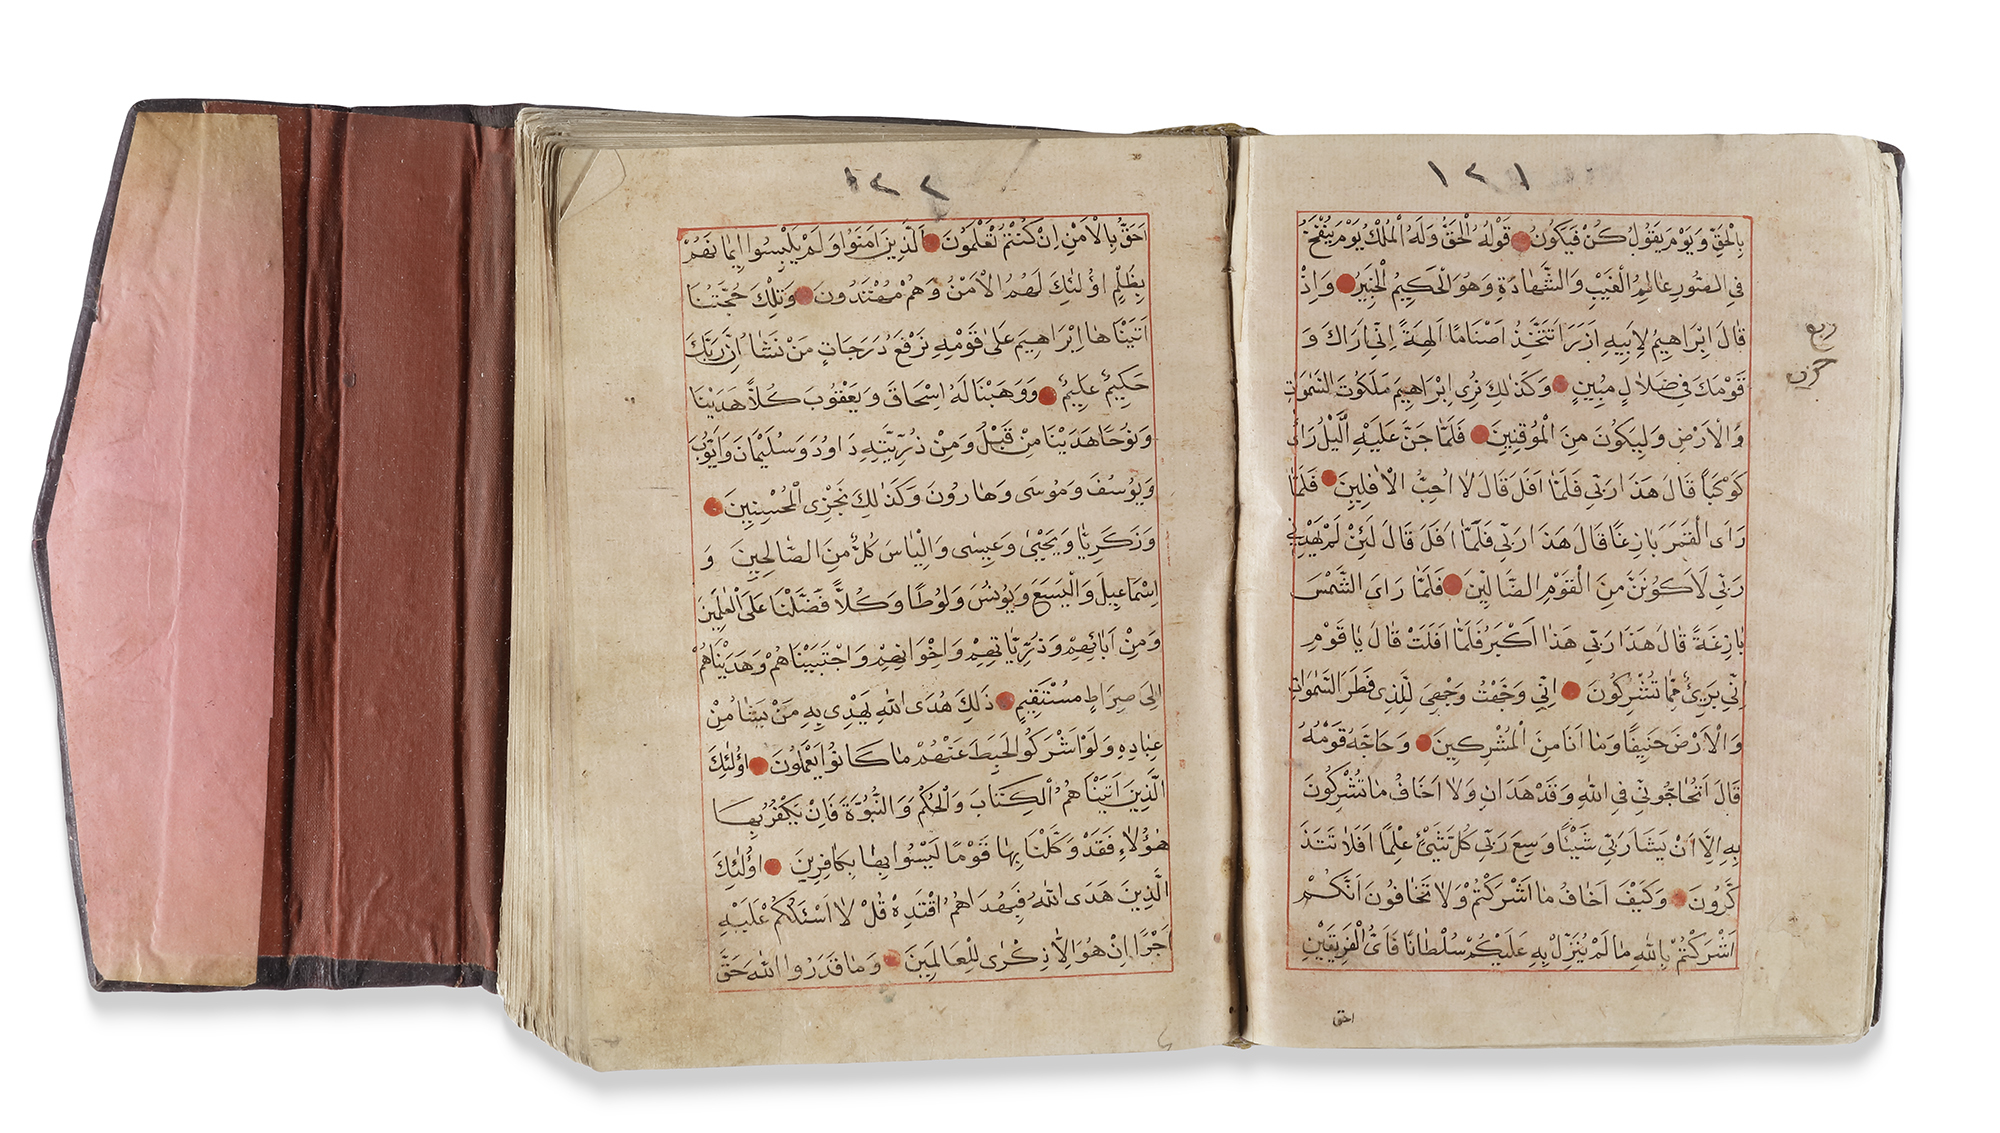 ١٢١
بِالْحَقِّ وَيَوْمَ يَقُولُ كُنْ فَيَكُونُ قَوْلُهُ الْحَقُّ وَلَهُ الْمُلْكُ يَوْمَ يُنْفَخُ
فِي الصُّورِ عَالِمُ الْغَيْبِ وَالشَّهَادَةِ وَهُوَ الْحَكِيمُ الْخَبِيرُ وَاِذْ
قَالَ اِبْرَاهِيمُ لِاَبِيهِ اٰزَرَ اَتَتَّخِذُ اَصْنَامًا اٰلِهَةً اِنِّي اَرَاكَ وَ
قَوْمَكَ فِي ضَلَالٍ مُبِينٍ وَكَذٰلِكَ نُرِي اِبْرَاهِيمَ مَلَكُوتَ السَّمٰوَاتِ
وَالْاَرْضِ وَلِيَكُونَ مِنَ الْمُوقِنِينَ فَلَمَّا جَنَّ عَلَيْهِ الَّيْلُ رَاٰى
كَوْكَبًا قَالَ هَذَا رَبِّي فَلَمَّا اَفَلَ قَالَ لَا اُحِبُّ الْاٰفِلِينَ فَلَمَّا
رَاَى الْقَمَرَ بَازِغًا قَالَ هَذَا رَبِّي فَلَمَّا اَفَلَ قَالَ لَئِنْ لَمْ يَهْدِنِي
رَبِّي لَاَكُونَنَّ مِنَ الْقَوْمِ الضَّالِّينَ فَلَمَّا رَاَى الشَّمْسَ
بَازِغَةً قَالَ هَذَا رَبِّي هَذَا اَكْبَرُ فَلَمَّا اَفَلَتْ قَالَ يَا قَوْمِ
اِنِّي بَرِيءٌ مِمَّا تُشْرِكُونَ اِنِّي وَجَّهْتُ وَجْهِيَ لِلَّذِي فَطَرَ السَّمٰوَاتِ
وَالْاَرْضَ حَنِيفًا وَمَا اَنَا مِنَ الْمُشْرِكِينَ وَحَاجَّهُ قَوْمُهُ
قَالَ اَتُحَاجُّونِّي فِي اللّٰهِ وَقَدْ هَدَانِ وَلَا اَخَافُ مَا تُشْرِكُونَ
بِهِ اِلَّا اَنْ يَشَا رَبِّي شَيْئًا وَسِعَ رَبِّي كُلَّ شَيْءٍ عِلْمًا اَفَلَا تَتَذَ
كَّرُونَ وَكَيْفَ اَخَافُ مَا اَشْرَكْتُمْ وَلَا تَخَافُونَ اَنَّكُمْ
اَشْرَكْتُمْ بِاللّٰهِ مَا لَمْ يُنَزِّلْ بِهِ عَلَيْكُمْ سُلْطَانًا فَاَيُّ الْفَرِيقَيْنِ
احق
ربع
حزب
١٢٢
اَحَقُّ بِالْاَمْنِ اِنْ كُنْتُمْ تَعْلَمُونَ اَلَّذِينَ اٰمَنُوا وَلَمْ يَلْبِسُوا اِيمَانَهُمْ
بِظُلْمٍ اُولٰئِكَ لَهُمُ الْاَمْنُ وَهُمْ مُهْتَدُونَ وَتِلْكَ حُجَّتُنَا
اٰتَيْنَاهَا اِبْرَاهِيمَ عَلٰى قَوْمِهِ نَرْفَعُ دَرَجَاتٍ مَنْ نَشَا اِنَّ رَبَّكَ
حَكِيمٌ عَلِيمٌ وَوَهَبْنَا لَهُ اِسْحَاقَ وَيَعْقُوبَ كُلًّا هَدَيْنَا
وَنُوحًا هَدَيْنَا مِنْ قَبْلُ وَمِنْ ذُرِّيَّتِهِ دَاوُدَ وَسُلَيْمَانَ وَاَيُّوبَ
وَيُوسُفَ وَمُوسَى وَهَارُونَ وَكَذٰلِكَ نَجْزِي الْمُحْسِنِينَ
وَزَكَرِيَّا وَيَحْيٰى وَعِيسٰى وَاِلْيَاسَ كُلٌّ مِنَ الصَّالِحِينَ وَ
اِسْمَاعِيلَ وَالْيَسَعَ وَيُونُسَ وَلُوطًا وَكُلًّا فَضَّلْنَا عَلَى الْعٰلَمِينَ
وَمِنْ اٰبَائِهِمْ وَذُرِّيَّاتِهِمْ وَاِخْوَانِهِمْ وَاجْتَبَيْنَاهُمْ وَهَدَيْنَاهُمْ
اِلٰى صِرَاطٍ مُسْتَقِيمٍ ذٰلِكَ هُدَى اللّٰهِ يَهْدِي بِهِ مَنْ يَشَا مِنْ
عِبَادِهِ وَلَوْ اَشْرَكُوا لَحَبِطَ عَنْهُمْ مَا كَانُوا يَعْمَلُونَ اُولٰئِكَ
الَّذِينَ اٰتَيْنَاهُمُ الْكِتَابَ وَالْحُكْمَ وَالنُّبُوَّةَ فَاِنْ يَكْفُرْ بِهَا
هٰؤُلَاءِ فَقَدْ وَكَّلْنَا بِهَا قَوْمًا لَيْسُوا بِهَا بِكَافِرِينَ اُولٰئِكَ
الَّذِينَ هَدَى اللّٰهُ فَبِهُدَاهُمُ اقْتَدِهْ قُلْ لَا اَسْئَلُكُمْ عَلَيْهِ
اَجْرًا اِنْ هُوَ اِلَّا ذِكْرٰى لِلْعَالَمِينَ وَمَا قَدَرُوا اللّٰهَ حَقَّ